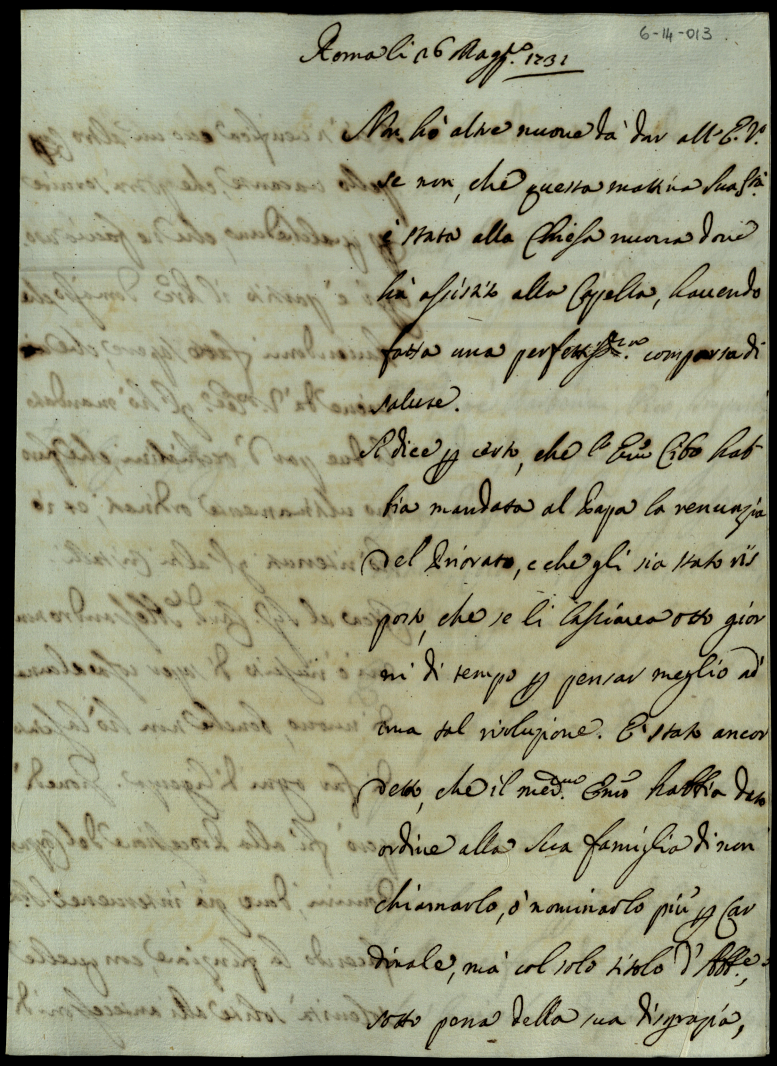 6-14-013
Roma li 26 Magg.o 1731
Non hò altre nuove dà dar all'E.V.
se non, che questa mattina Sua Stà
è stata alla Chiesa nuova dove
hà assistito alla Capella, havendo
fatta una comparsa di
salute.
Si dice p certo, che l'Emo Cibo hab
bia mandata al Papa la renunzia
del Priorato, e che gli sia stato ris
posto, che se li lasciavea otto gior
ni di tempo p pensar meglio ad'
una tal risoluzione. E' stato ancor
detto, che il med.mo Emo habbia dato
ordine alla sua famiglia di non
chiamarlo, ò nominarlo più p Car
dinale, mà col solo titolo d'Abb.e,
sotto pena della sua disgrazia,